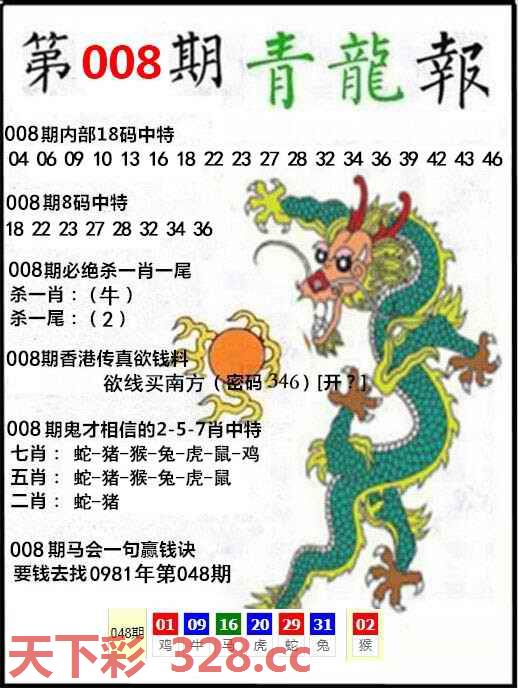 第008期青龍報
008期内部18码中特
04 06 09 10 13 16 18 22 23 27 28 32 34 36 39 42 43 46
008期8码中特
18 22 23 27 28 32 34 36
008期必绝杀一肖一尾
杀一肖：（牛）
杀一尾：（2）
008期香港传真欲钱料
欲线买南方（密码346）[开？]
008期鬼才相信的2-5-7肖中特
七肖： 蛇-猪-猴-兔-虎-鼠-鸡
五肖： 蛇-猪-虎-兔-虎-鼠
二肖： 蛇-猪
008期马会一句赢钱诀
要钱去找0981年第048期
048期 01 09 16 20 29 31 02
鸡 牛 马 虎 蛇 兔 猴
天下彩 328.cc